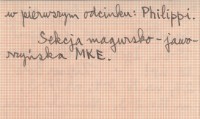 w pierwszym odcinku: Philippi.
Sekcja magursko-jawo-
rzyńska MKE.